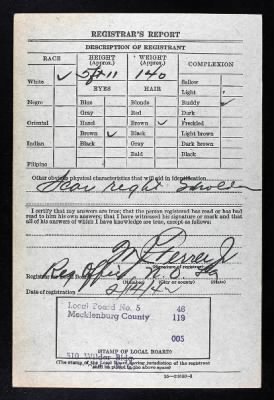 REGISTRAR'S REPORT
DESCRIPTION OF REGISTRANT
RACE HEIGHT (Approx.) WEIGHT (Approx.) COMPLEXION
White ✓ 5 ft 11 140 Sallow
EYES HAIR Light
Negro Blue Blonde Ruddy ✓
Gray Red Dark
Oriental Hazel Brown ✓ Freckled
Brown ✓ Black Light brown
Indian Black Gray Dark brown
Bald Black
Filipino
Other obvious physical characteristics that will aid in identification
Scar right
I certify that my answers are true; that the person registered has read or has had
read to him his own answers; that I have witnessed his signature or mark and that
all of his answers of which I have knowledge are true, except as follows:
(Signature of registrar)
Registrar for Local Board
(Number) (City or county) (State)
Date of registration 2/14/42
Local Board No. 5 48
Mecklenburg County 119
005
STAMP OF LOCAL BOARD
510 Wilder Bldg
(The stamp of the Local Board having jurisdiction of the registrant
shall be placed in the above space)